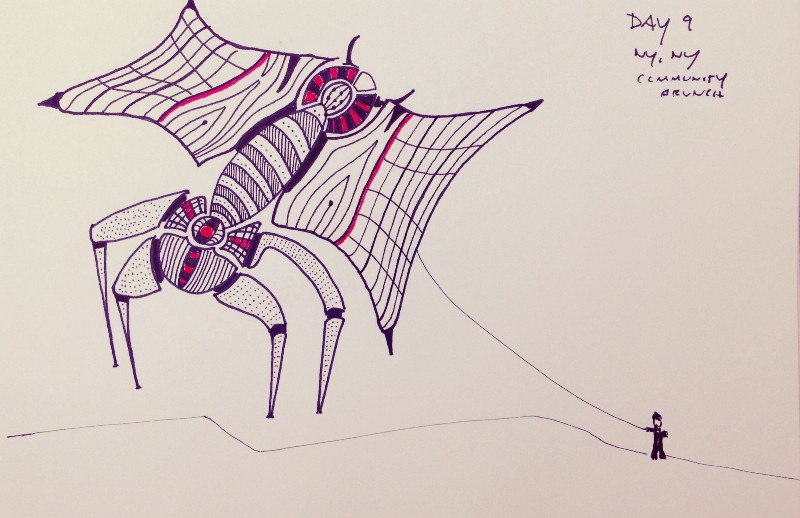 DAY 9
NY, NY
COMMUNITY
BRUNCH